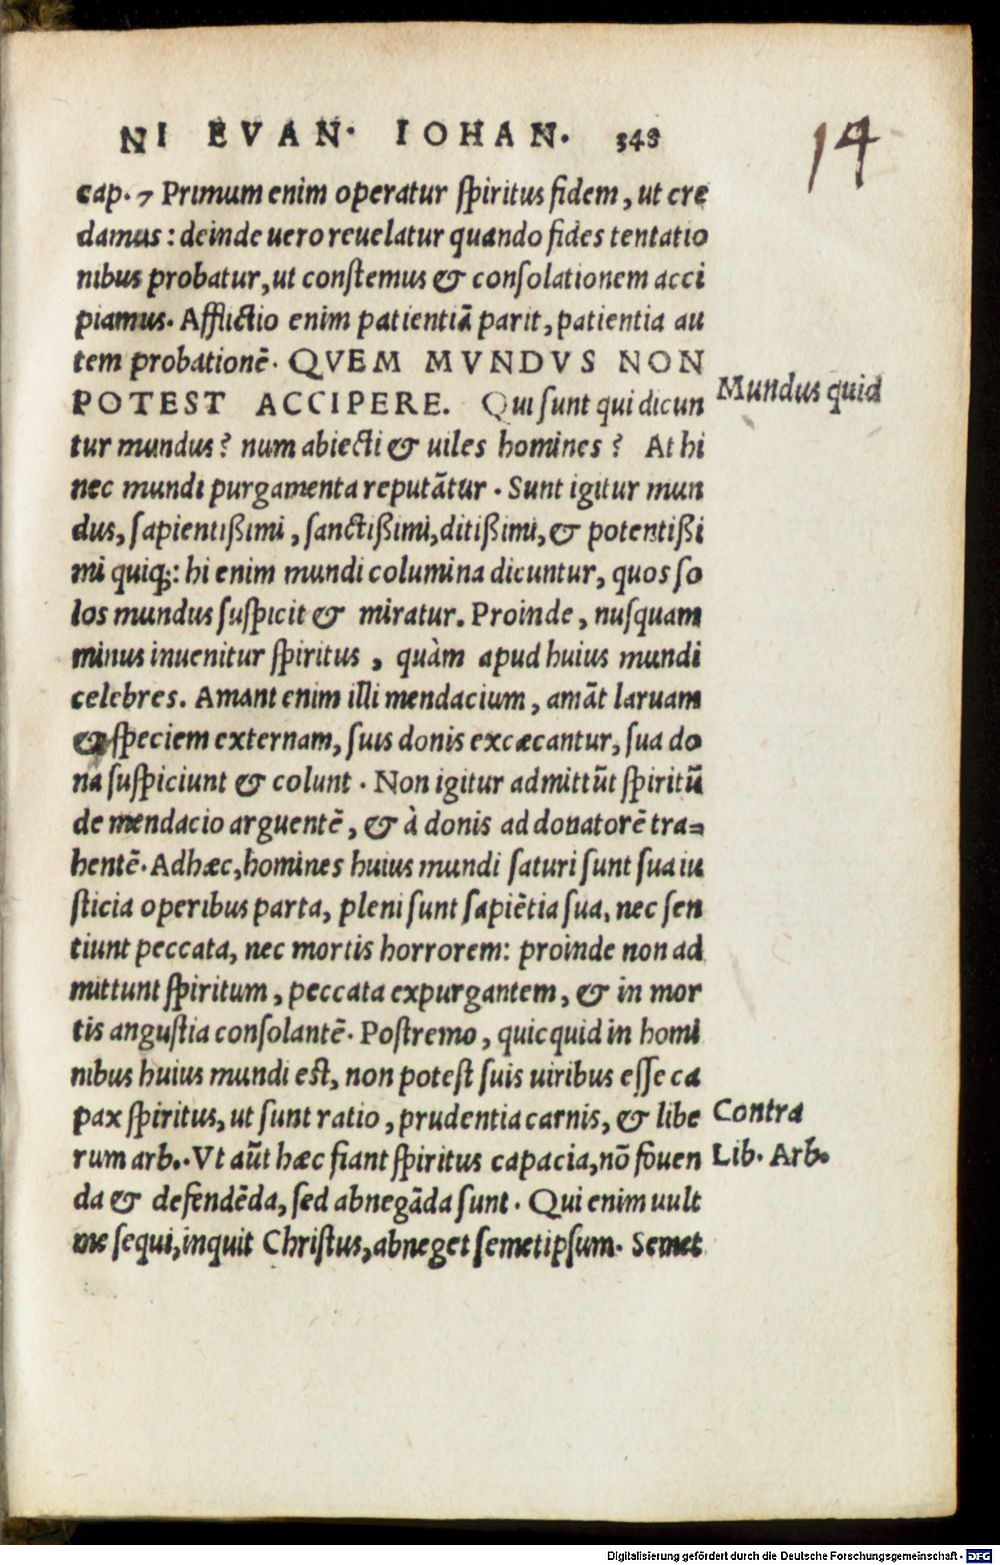 NI EVAN. IOHAN. 348
14
cap. 7 Primum enim operatur ſpiritus fidem, ut cre
damus: deinde uero reuelatur quando fides tentatio
nibus probatur, ut conſtemus & conſolationem acci
piamus. Afflictio enim patientiā parit, patientia au
tem probationē. QVEM MVNDVS NON
POTEST ACCIPERE. Qui ſunt qui dicun
Mundus quid
tur mundus? num abiecti & uiles homines? At hi
nec mundi purgamenta reputātur. Sunt igitur mun
dus, ſapientißimi, ſanctißimi, ditißimi, & potentißi
mi quiq;: hi enim mundi columina dicuntur, quos ſo
los mundus ſuſpicit & miratur. Proinde, nuſquam
minus inuenitur ſpiritus, quàm apud huius mundi
celebres. Amant enim illi mendacium, amāt laruam
& ſpeciem externam, ſuis donis excæcantur, ſua do
na ſuſpiciunt & colunt. Non igitur admittūt ſpiritū
de mendacio arguentē, & à donis ad donatorē tra=
hentē. Ad hæc, homines huius mundi ſaturi ſunt ſua iu
ſticia operibus parta, pleni ſunt ſapiētia ſua, nec ſen
tiunt peccata, nec mortis horrorem: proinde non ad
mittunt ſpiritum, peccata expurgantem, & in mor
tis anguſtia conſolantē. Poſtremo, quicquid in homi
nibus huius mundi eſt, non poteſt ſuis uiribus eſſe ca
pax ſpiritus, ut ſunt ratio, prudentia carnis, & libe
Contra
rum arb.. Vt aūt hæc fiant ſpiritus capacia, nō fouen
Lib. Arb.
da & defendēda, ſed abnegāda ſunt. Qui enim uult
me ſequi, inquit Chriſtus, abneget ſemetipſum. Semet
Digitalisierung gefördert durch die Deutsche Forschungsgemeinschaft - DFG